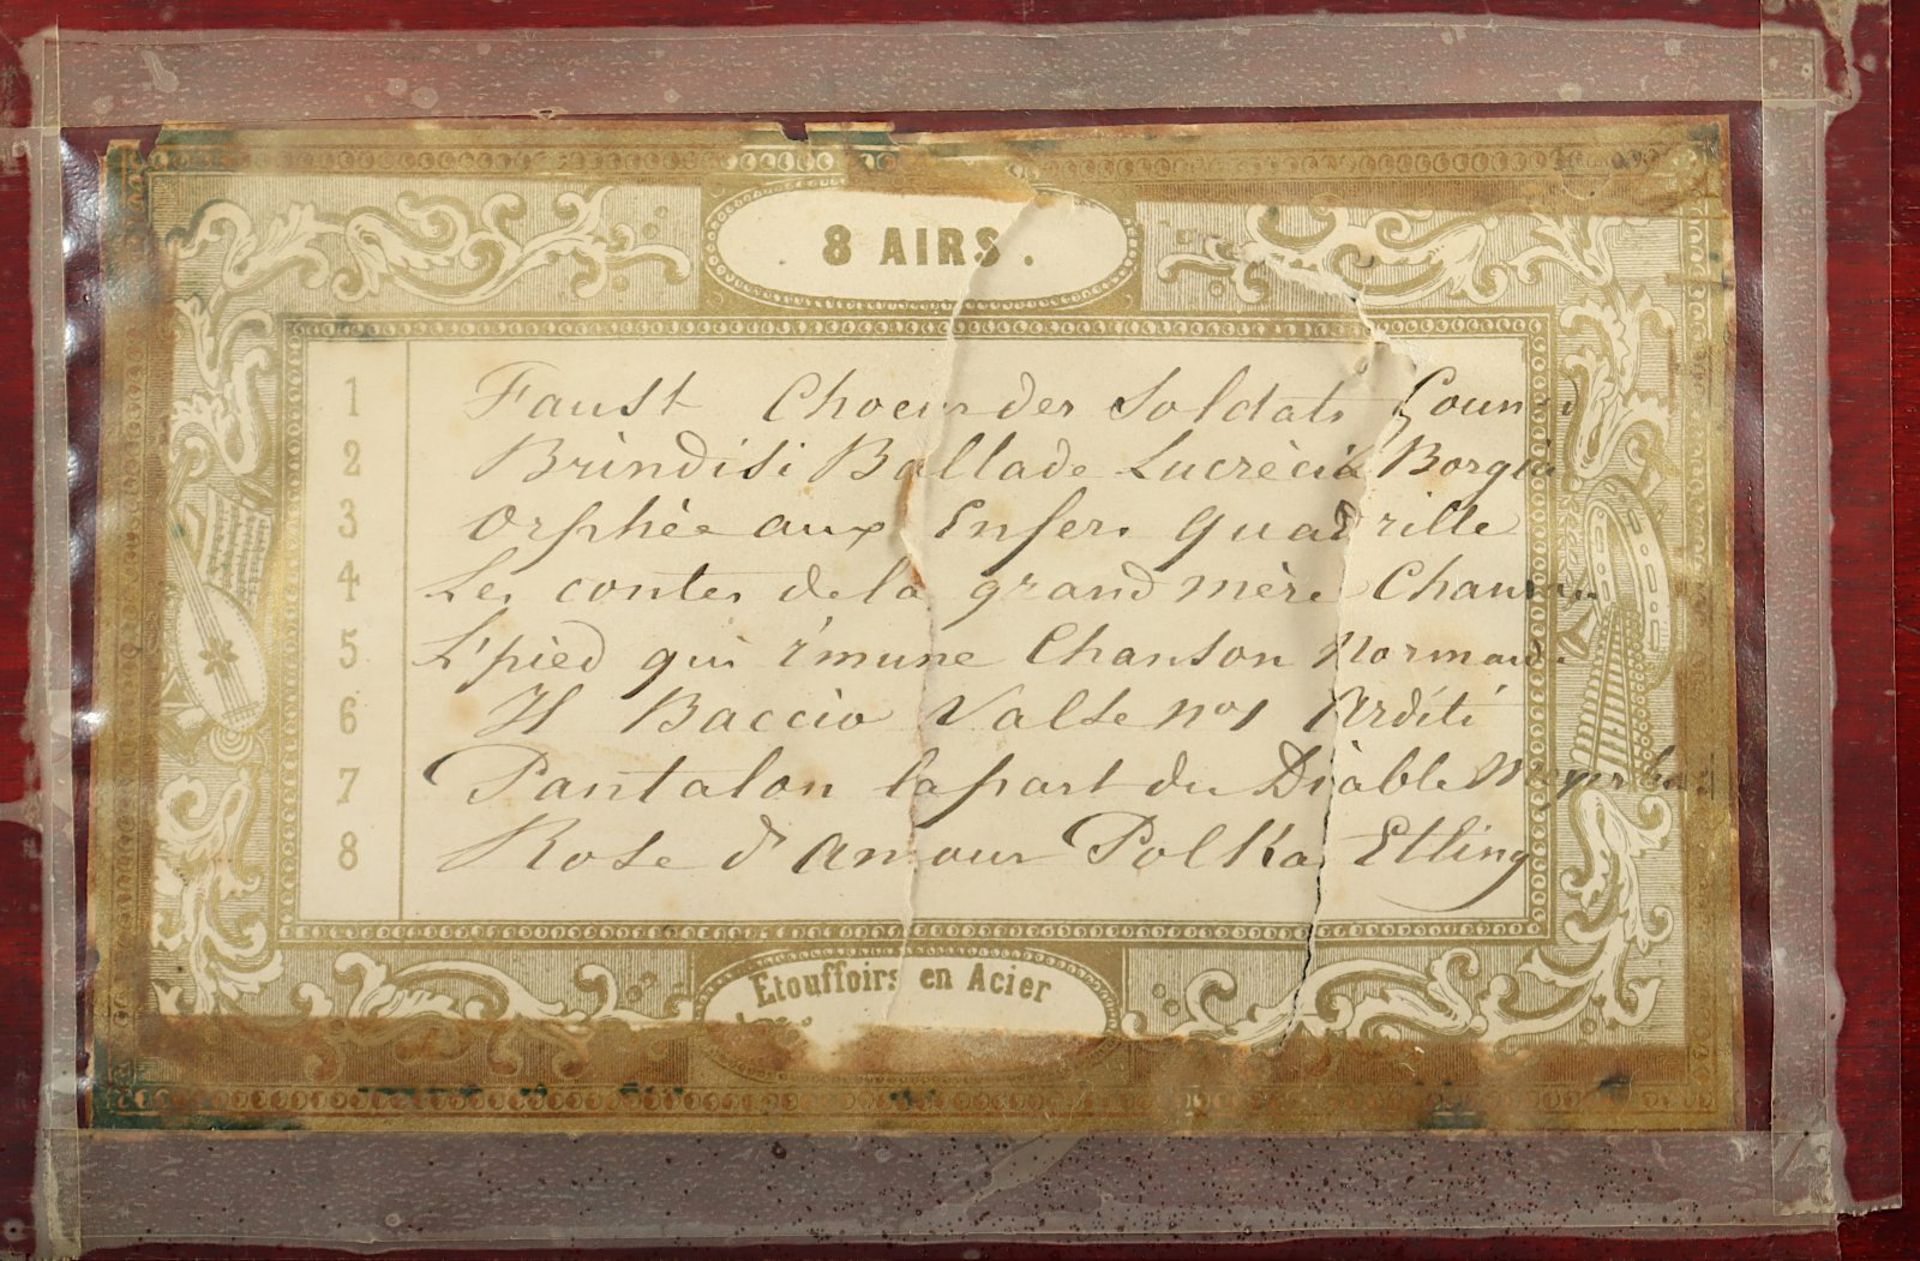 8 AIRS.
1 Faust Choeur des Soldats Gounod
2 Brindisi Ballade Lucrècia Borgia
3 Orphée aux Enfers Quadrille
4 Les contes de la grand mère
5 L'pied qui r'mune Chanson Normande
6 Il Baccio Valse no1 Arditi
7 Pantalon la part du Diable
8 Rose d'Amour Polka Etling
Etouffoirs en Acier